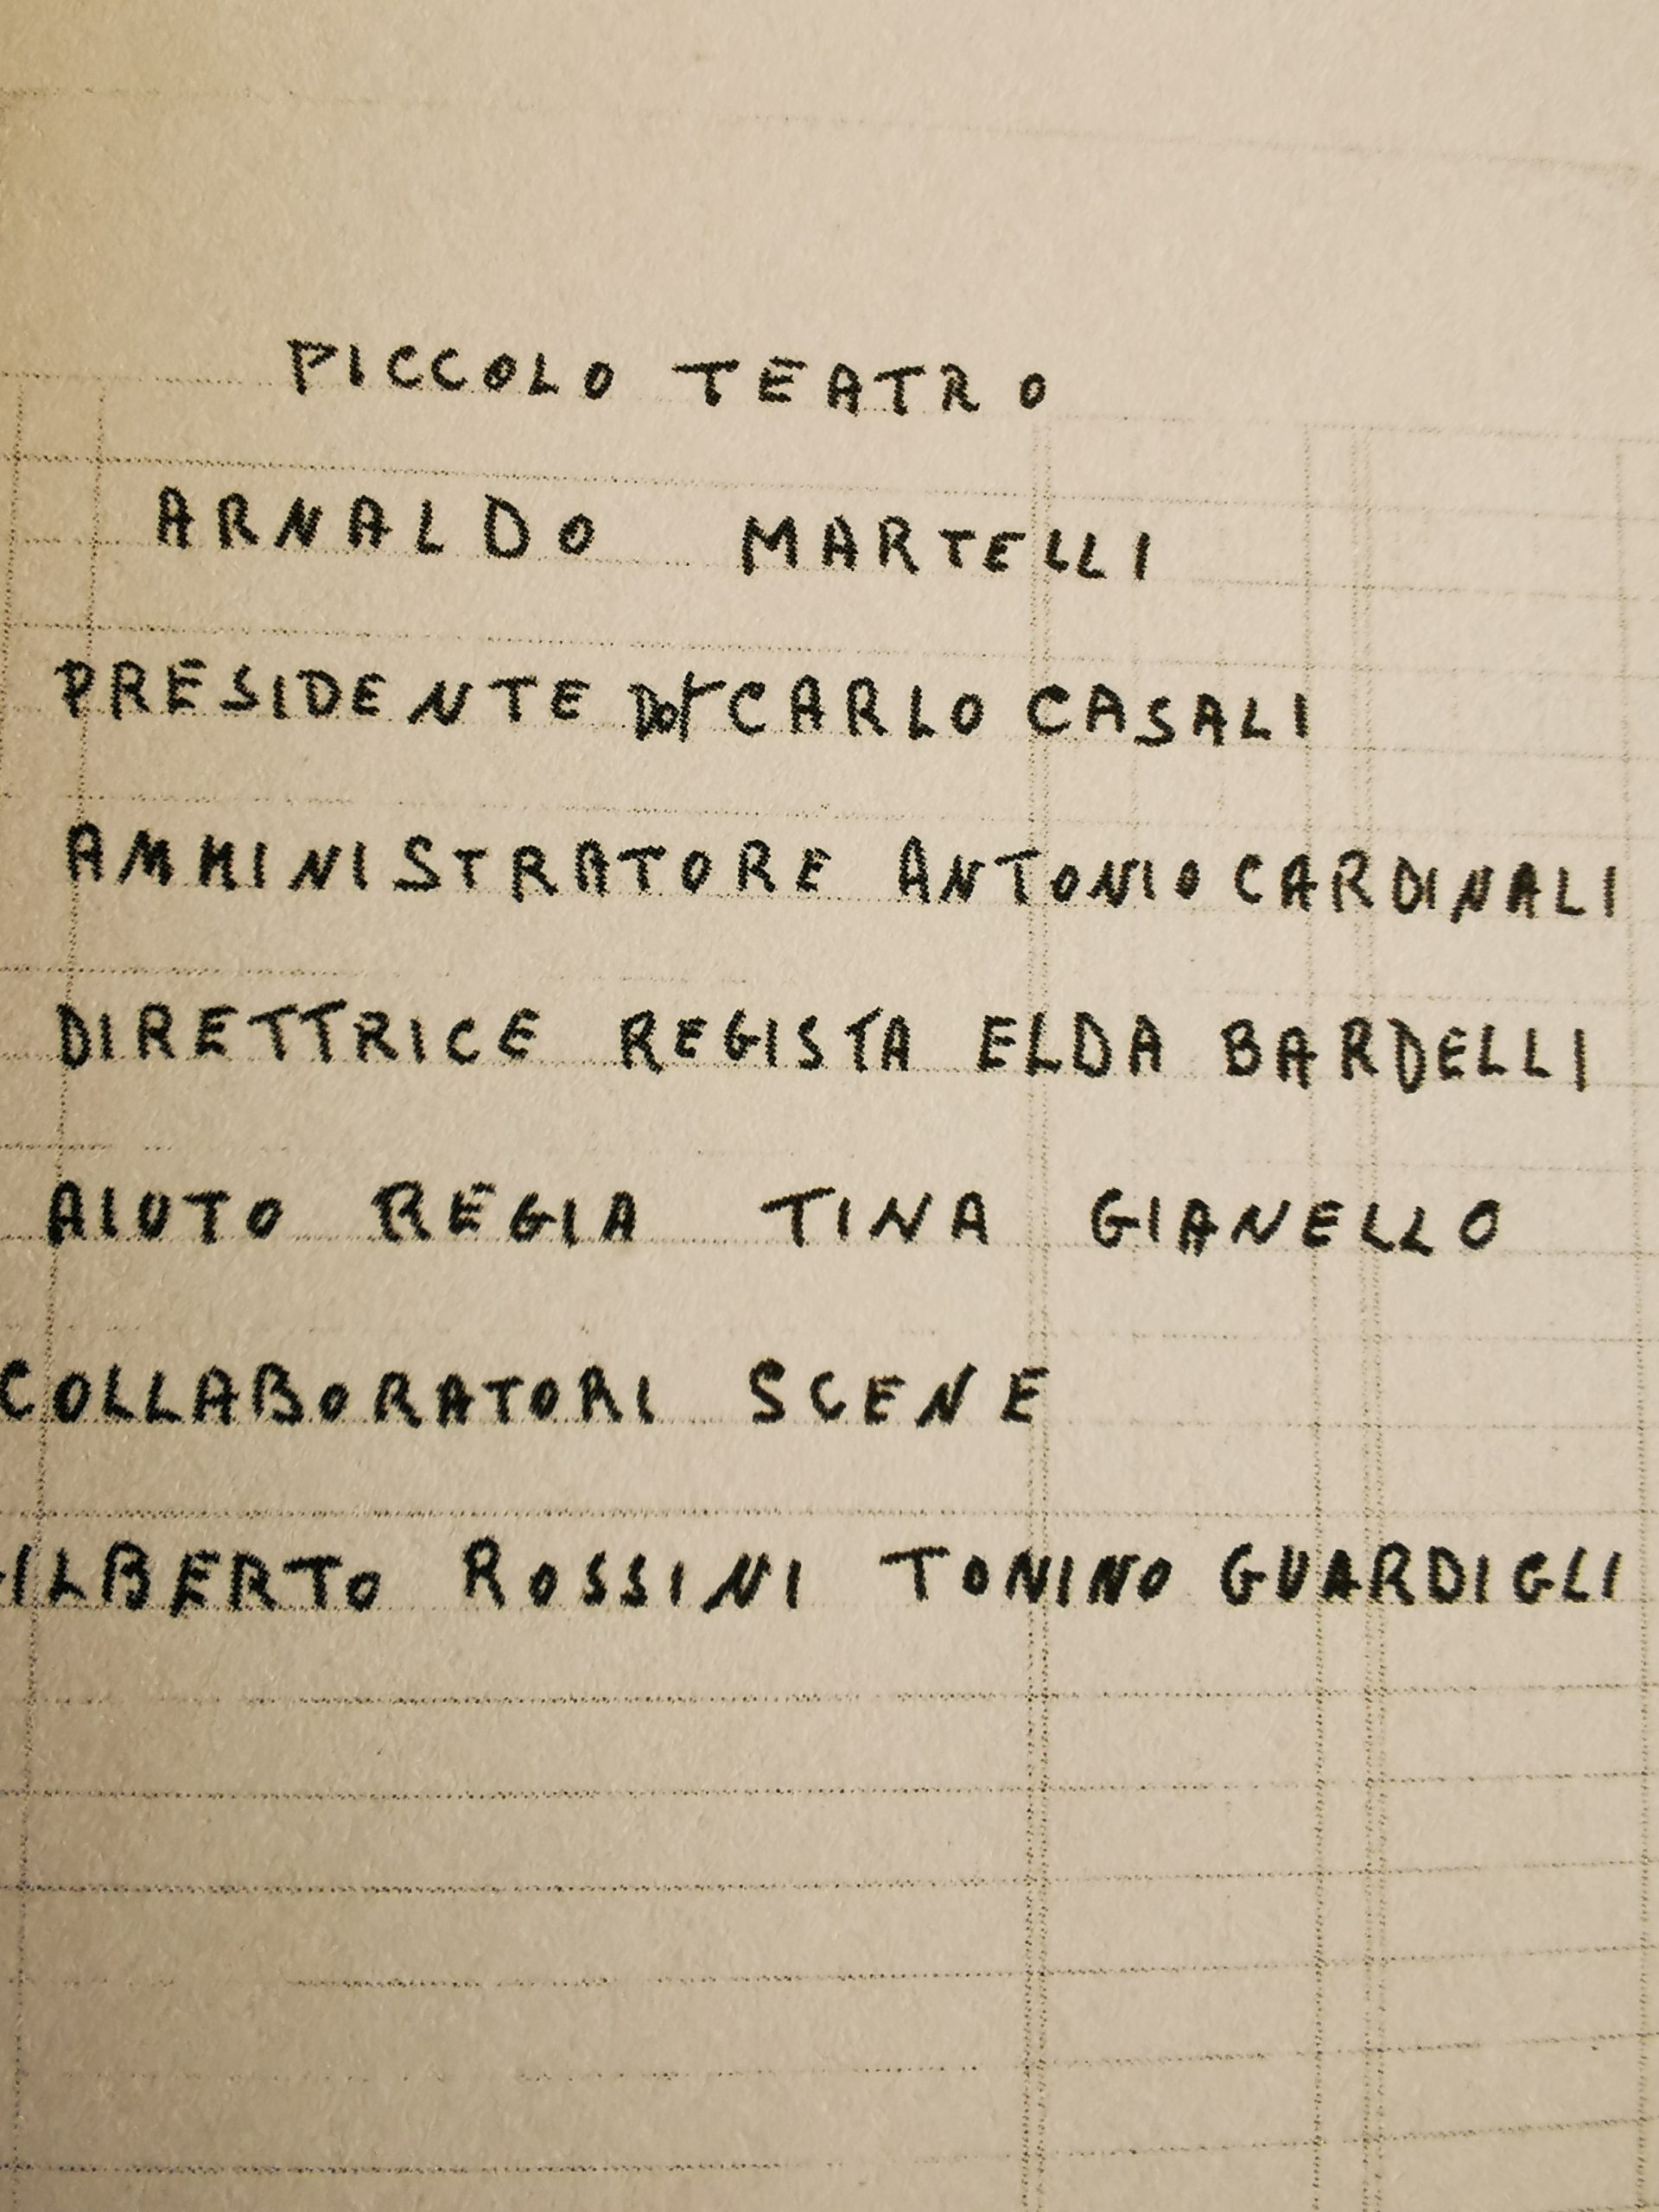 PICCOLO TEATRO
ARNALDO MARTELLI
PRESIDENTE Dot CARLO CASALI
AMMINISTRATORE ANTONIO CARDINALI
DIRETTRICE REGISTA ELDA BARDELLI
AIUTO REGIA TINA GIANELLO
COLLABORATORI SCENE
GILBERTO ROSSINI TONINO GUARDIGLI